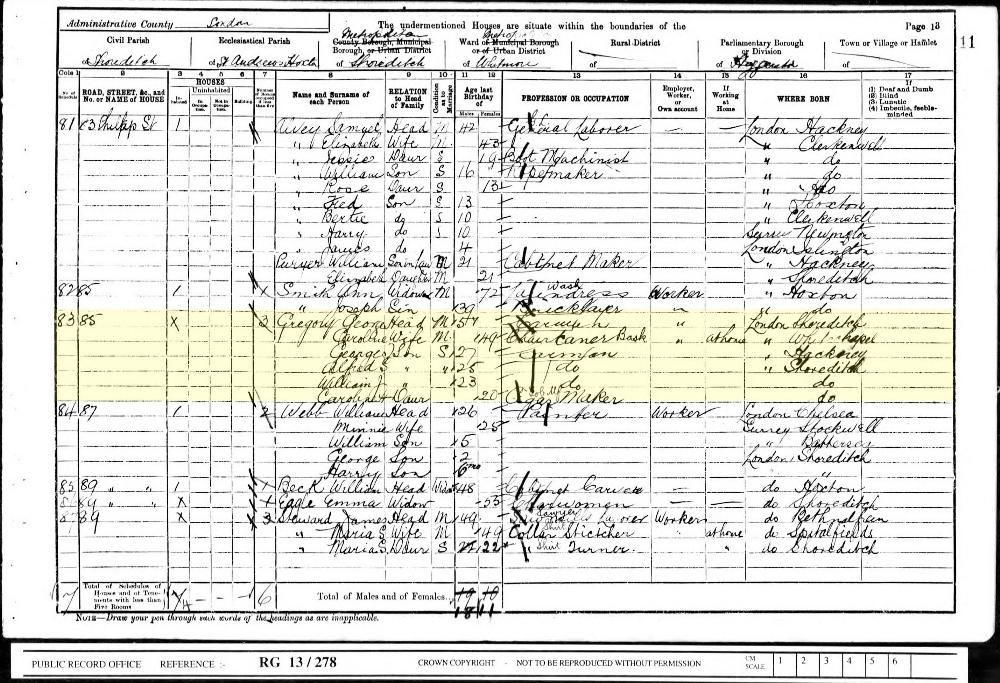 Administrative County London
The undermentioned Houses are situate within the boundaries of the
Page 18
11
Civil Parish
Ecclesiastical Parish
Metropolitan
County Borough, Municipal Borough, or Urban District
Ward of Municipal Borough or of Urban District
Rural District
Parliamentary Borough or Division
Town or Village or Hamlet
of Shoreditch
of St Andrews Hoxton
of Shoreditch
of Whitmore
of
of Haggerston
of
Cols 1 2 3 4 5 6 7 8 9 10 11 12 13 14 15 16 17
No. of Schedule
ROAD, STREET, &c., and No. or NAME of HOUSE
HOUSES
Inhabited
Uninhabited
In Occupation
Not in Occupation
Building
Number of Rooms occupied if less than five
Name and Surname of each Person
RELATION to Head of Family
Condition as to Marriage
Age last Birthday of
Males Females
PROFESSION OR OCCUPATION
Employer, Worker, or Own account
If Working at Home
WHERE BORN
If (1) Deaf and Dumb (2) Blind (3) Lunatic (4) Imbecile, feeble-minded
81 83 Philipp St 1 Alvey Samuel Head M 42 General Laborer — — London Hackney
" Elizabeth Wife M 43 — " Clerkenwell
" Jessie Daur S 19 Boot Machinist " do
" William Son S 16 Ropemaker " do
" Rose Daur S 13 — " do
" Fred Son S 13 — " Hoxton
" Bertie do S 10 — " Clerkenwell
" Harry do S 10 — Surrey Newington
" James do 4 — London Islington
Purver William Son in law M 21 Cabinet Maker " Hackney
Elizabeth Daughter M 21 — " Shoreditch
82 85 1 Smith Ann Widow 72 Wash Worker " Hoxton
" Joseph Son 39 Bricklayer " " do
83 85 X 3 Gregory George Head M 57 " London Shoreditch
Caroline Wife M 49 Chair Caner Bask " at home " Whitechapel
George Son S 27 Carman " Hackney
Alfred S " " 25 do " Shoreditch
William J " 23 do do
Caroline Daur 20 Cigar Maker do
84 87 1 2 Webb William Head 26 Painter Worker London Chelsea
Minnie Wife 28 Surrey Stockwell
William Son 5 " Battersea
George Son 2 London Shoreditch
Harry Son 6mo "
85 89 " " 1 Beck William Head Widr 48 Cabinet Carver — — do Hoxton
89 " " X Eagle Emma Widow 55 Charwoman — — do Shoreditch
89 X 3 Steward James Head M 49 Laborer Worker do Bethnal Green
" Maria S Wife M 49 Collar Stitcher " at home do Spitalfields
" Maria S. Daur S 22 Shirt Turner " do Shoreditch
7 Total of Schedules of Houses and of Tenements with less than Five Rooms 6 Total of Males and of Females 19 10
18 11
NOTE—Draw your pen through such words of the headings as are inapplicable.
PUBLIC RECORD OFFICE REFERENCE :- RG 13 / 278 CROWN COPYRIGHT - NOT TO BE REPRODUCED WITHOUT PERMISSION CM SCALE 1 2 3 4 5 6